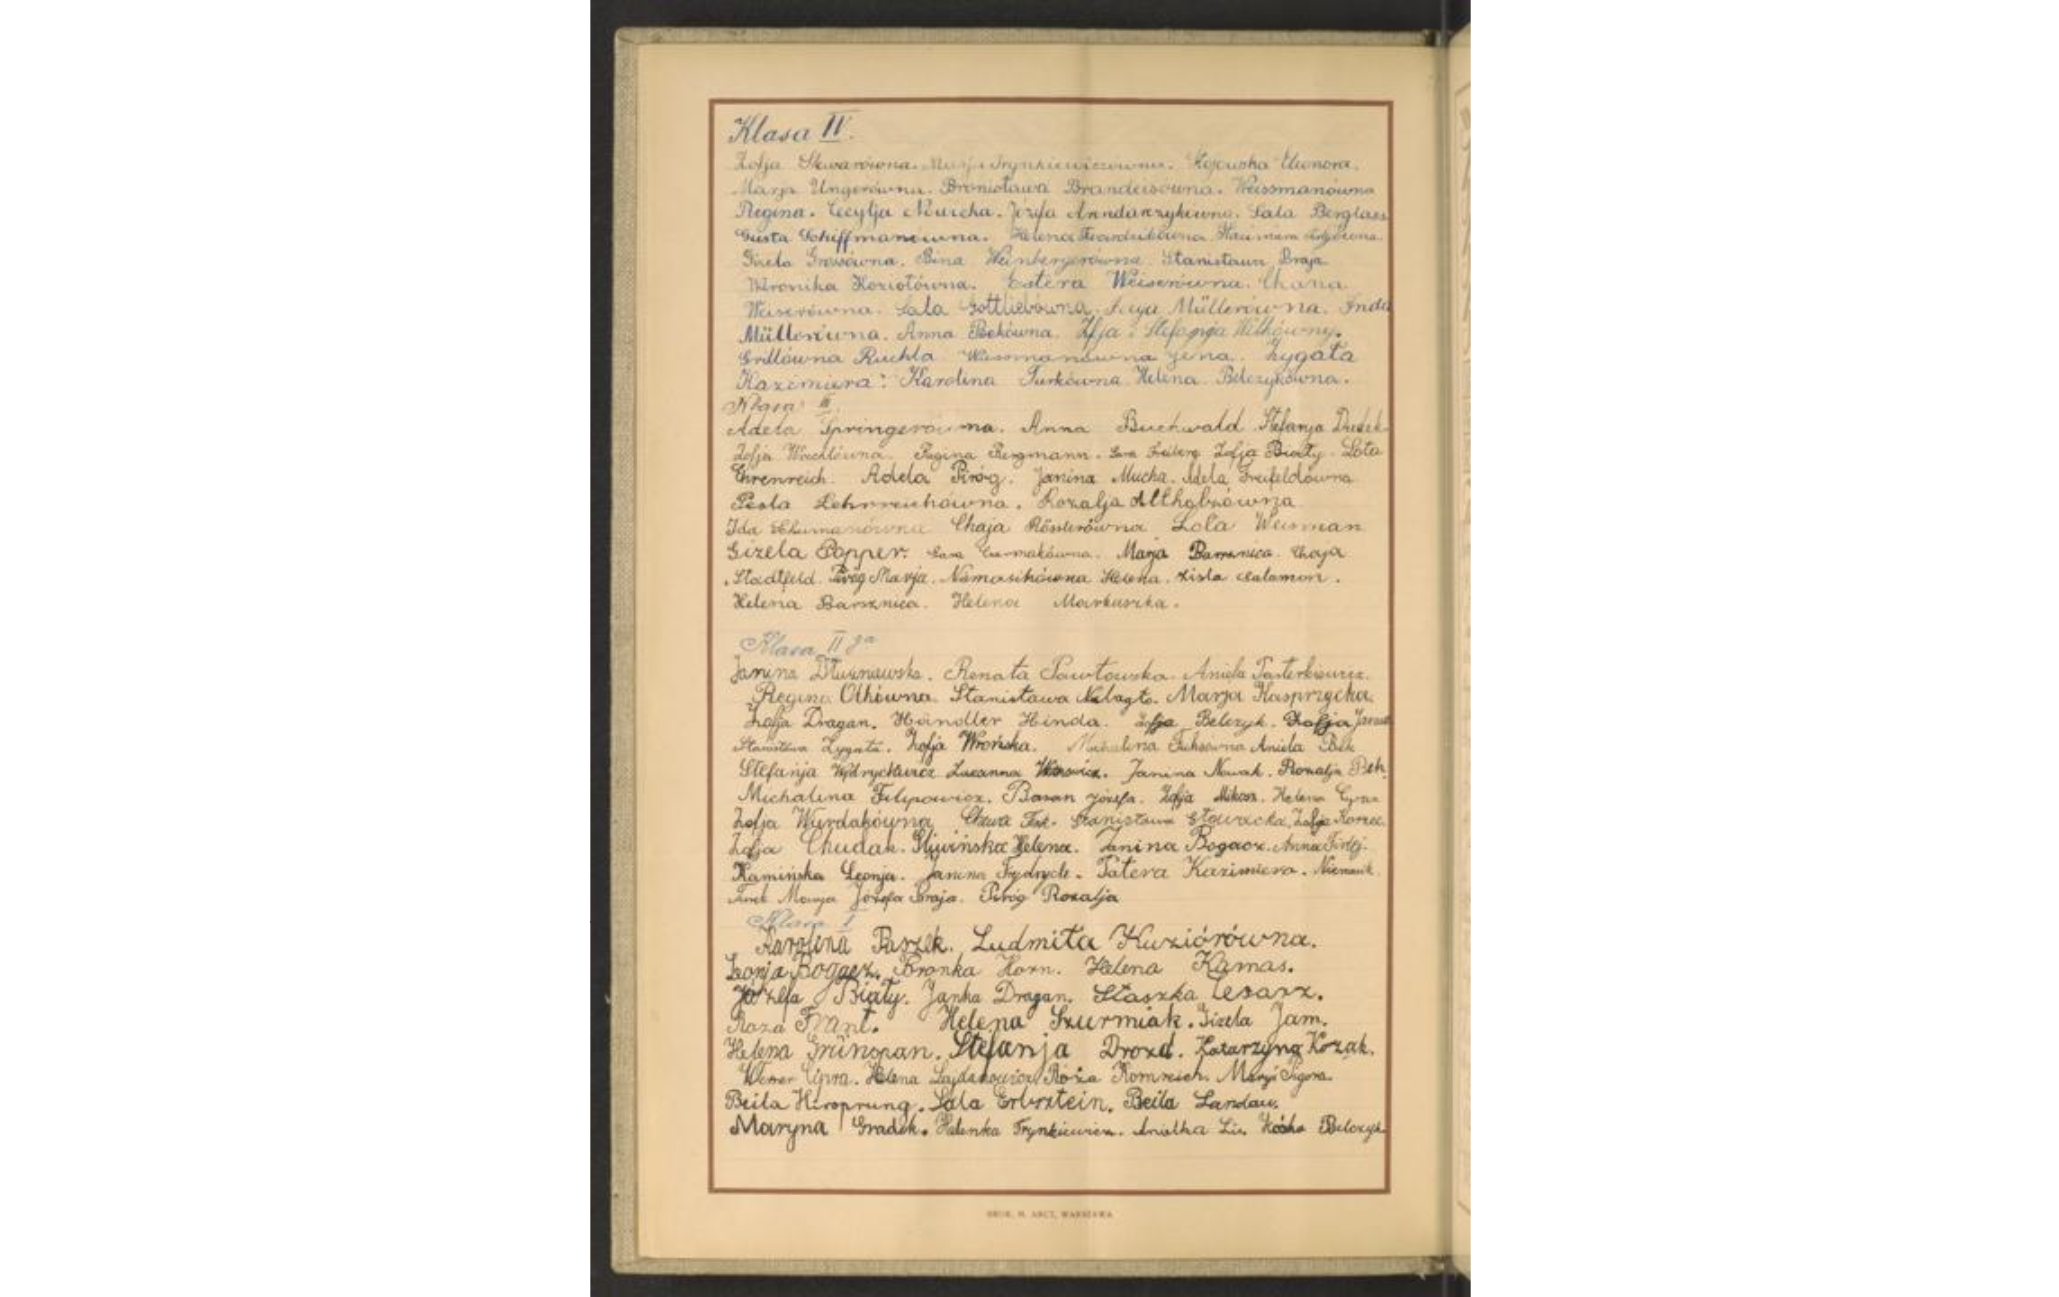 Klasa IV.
Zofja Skwarówna. Marja Trynkiewiczówna. Eleonora.
Marja Ungerówna. Bronisława Brandeisówna. Weissmanówna
Regina. Cecylja Józefa Sala Berglass
Gusta Schiffmanówna. Helena Twardzikówna
Gizela Grossówna. Bina Weinbergerówna Stanisława Braja
Weronika Koziołówna. Estera Weiserówna. Chana
Weiserówna. Sala Gottliebówna. Müllerówna. Inda
Müllerówna. Anna Bekówna. Zofja i Stefanja Wilkówny.
Grillówna Ruchla Wiessmanówna Jena. Zygała
Kazimiera: Karolina Turkówna Helena Belczykówna.
Klasa III.
Adela Springerówna. Anna Buchwald Stefanja Dudek
Zofja Regina Bergmann. Sara Freiberg Zofja Biały Lota
Ehrenreich. Adela Piróg. Janina Mucha. Adela Freifeldówna
Pesla Rozalja
Ida Chaja Rösslerówna Lola Weisman
Gizela Popper. Sara Marja Barsznica Chaja
Stadtfeld. Piróg Marja. Helena. Zisla Salamon.
Helena Barsznica. Helena Markuszka.
Klasa II ga
Janina Dłużniewska. Renata Pawłowska. Aniela Pasterkiewicz.
Regina Othówna. Stanisława Nalazło. Marja Kasprzycka.
Zofja Dragan. Händler Hinda. Zofja Belczyk. Zofja
Stanisława Zygała. Zofja Wrońska. Michalina Fuksówna Aniela Bek
Stefanja Zuzanna Janina Nowak. Rozalja Bek.
Michalina Filipowicz. Baran Józefa. Zofja Mikosz. Helena
Zofja Wurdakówna Stanisława Głowacka, Zofja Korzec.
Zofja Chudak. Śliwińska Helena. Janina Bogacz. Anna
Kamińska Leonja. Janina Frydrych. Patera Kazimiera.
Turek Marja Józefa Braja. Piróg Rozalja
Klasa I
Karolina Paszek. Ludmiła Kuziórówna.
Leonja Bogacz. Bronka Horn. Helena Kamas.
Józefa Biały. Janka Dragan. Staszka Cesarz.
Roza Frant. Helena Szurmiak. Gizela Jam.
Helena Grünspan. Stefanja Drozd. Katarzyna Kozak.
Cipra. Helena Lajdanowicz Róża Kornreich. Marji Sigora.
Beila Hirsprung. Sala Erbsztein. Beila Landau.
Maryna Gradek. Helenka Trynkiewicz. Anialka Lis. Zośka Belczyk
DRUK. M. ARCT, WARSZAWA